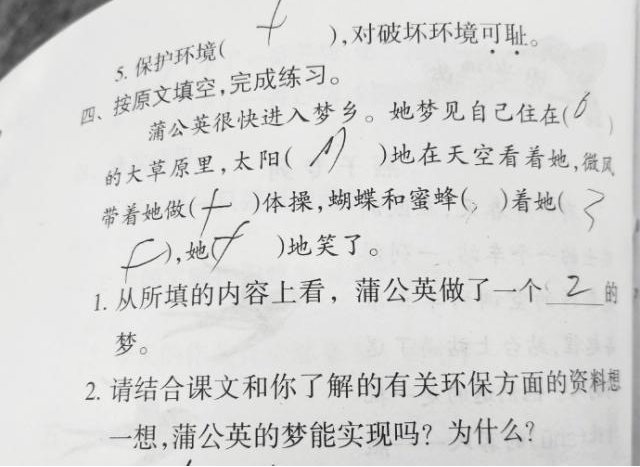 5. 保护环境( ),对破坏环境可耻。
四、按原文填空,完成练习。
蒲公英很快进入梦乡。她梦见自己住在( )
的大草原里,太阳( )地在天空看着她,微风
带着她做( )体操,蝴蝶和蜜蜂( )着她(
),她( )地笑了。
1. 从所填的内容上看，蒲公英做了一个 2 的
梦。
2. 请结合课文和你了解的有关环保方面的资料想
一想,蒲公英的梦能实现吗？为什么？